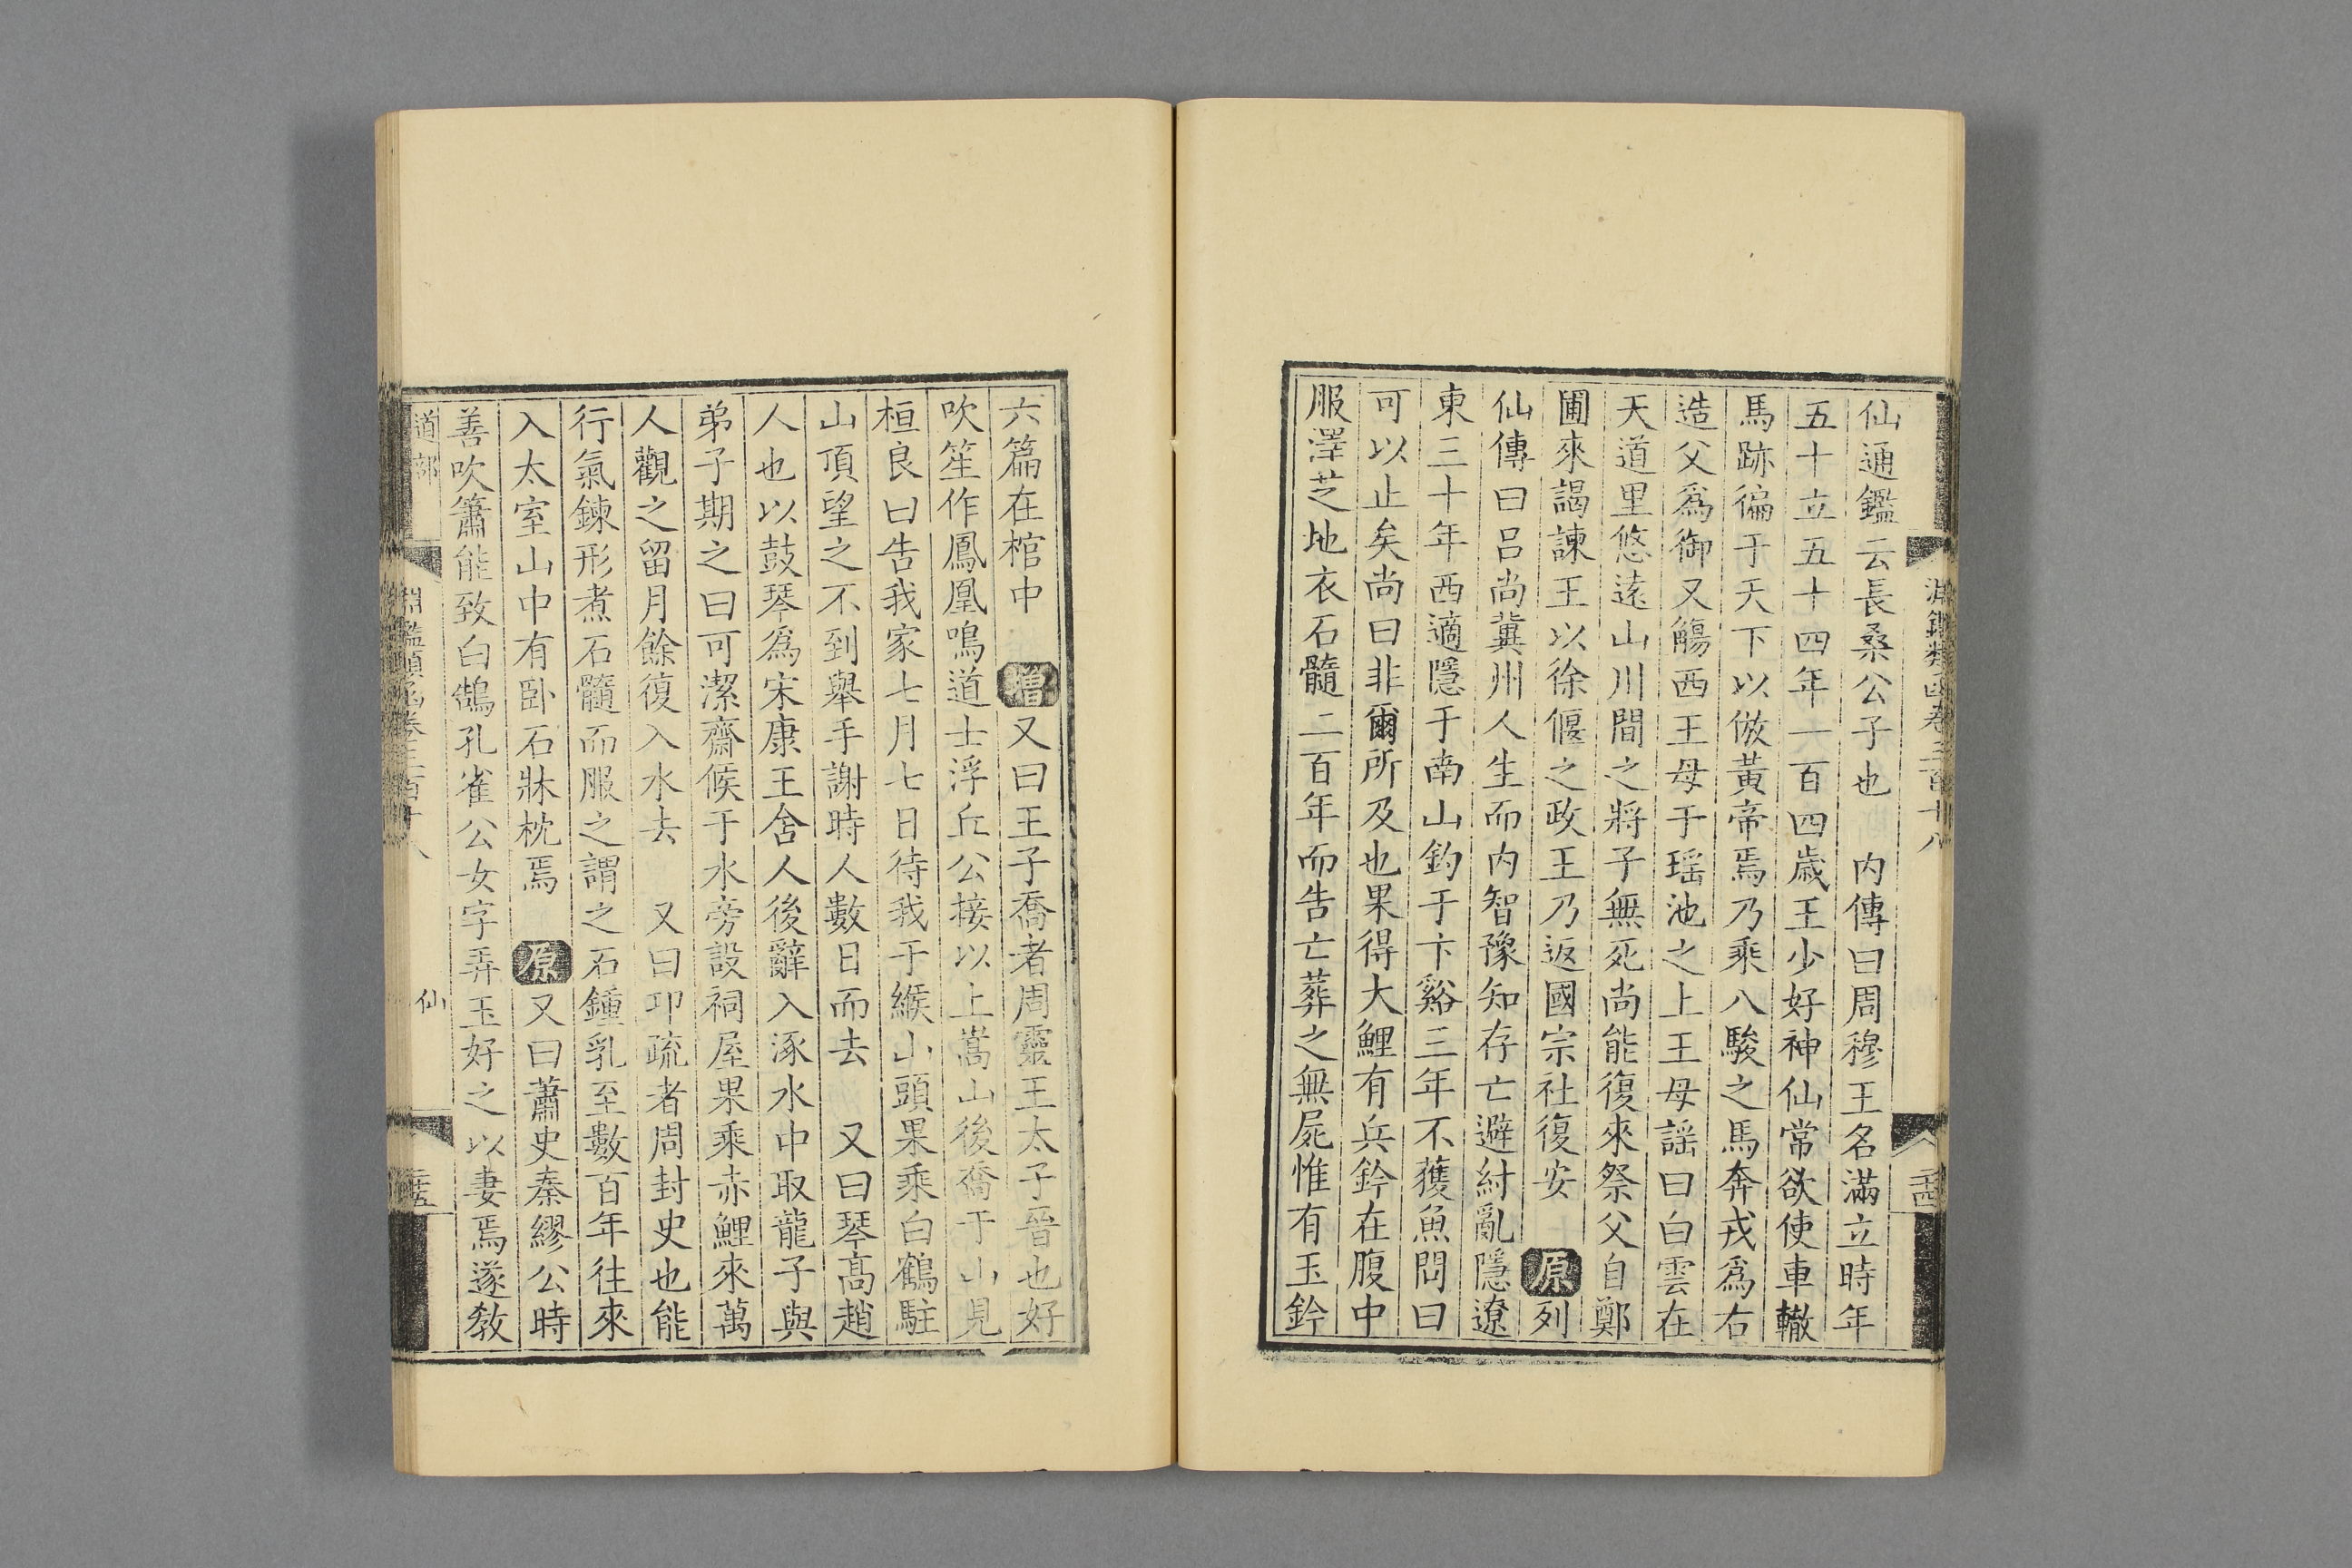 淵鑑類函卷三百十八
仙通鑑云長桑公子也　內傳曰周穆王名滿立時年
五十立五十四年一百四歲王少好神仙常欲使車轍
馬跡徧于天下以倣黃帝焉乃乘八駿之馬奔戎爲右
造父爲御又觴西王母于瑤池之上王母謠曰白雲在
天道里悠遠山川間之將子無死尚能復來祭父自鄭
圃來謁諫王以徐偃之政王乃返國宗社復安　原列
仙傳曰呂尚冀州人生而內智豫知存亡避紂亂隱遼
東三十年西適隱于南山釣于卞谿三年不獲魚問曰
可以止矣尚曰非爾所及也果得大鯉有兵鈐在腹中
服澤芝地衣石髓二百年而告亡葬之無屍惟有玉鈐
六篇在棺中　增又曰王子喬者周靈王太子晉也好
吹笙作鳳凰鳴道士浮丘公接以上嵩山後喬于山見
桓良曰告我家七月七日待我于緱山頭果乘白鶴駐
山頂望之不到舉手謝時人數日而去　又曰琴高趙
人也以鼓琴爲宋康王舍人後辭入涿水中取龍子與
弟子期之曰可潔齋候于水旁設祠屋果乘赤鯉來萬
人觀之留月餘復入水去　又曰卭疏者周封史也能
行氣鍊形煮石髓而服之謂之石鍾乳至數百年往來
入太室山中有卧石牀枕焉　原又曰蕭史秦繆公時
善吹簫能致白鵠孔雀公女字弄玉好之以妻焉遂敎
道部　淵鑑類函卷三百十八　仙　二十五